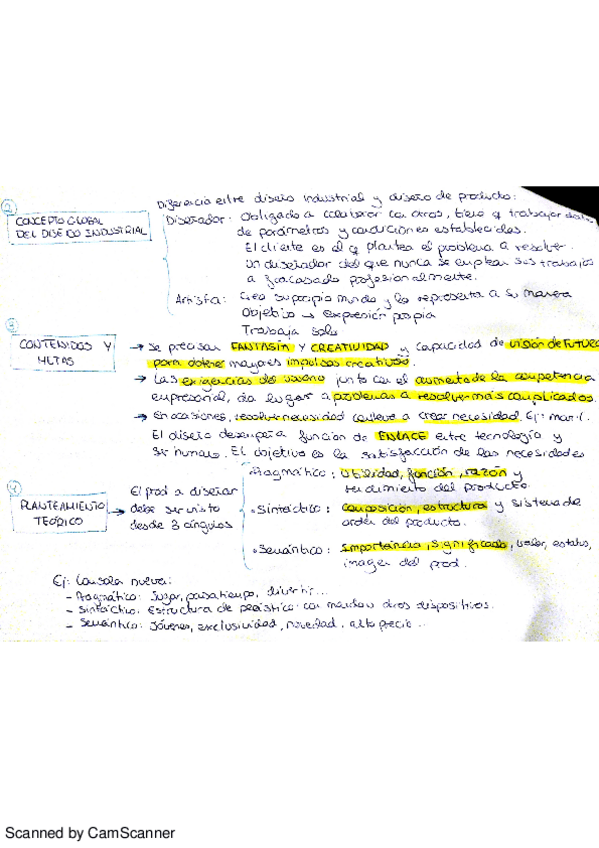 2
CONCEPTO GLOBAL
DEL DISEÑO INDUSTRIAL
Diferencia entre diseño industrial y diseño de producto:
Diseñador: Obligado a colaborar con otros, tiene q trabajar
de parámetros y condiciones establecidas.
El cliente es el q plantea el problema a resolver.
Un diseñador del que nunca se emplean sus trabajos
a fracasado profesionalmente.
Artista: Crea su propio mundo y lo representa a su manera
Objetivo → expresión propia
Trabaja solo
3
CONTENIDOS Y
METAS
→ Se precisan FANTASÍA Y CREATIVIDAD y capacidad de visión de FUTURO
para obtener mayores impulsos creativos.
→ Las exigencias del usuario junto con el aumento de la competencia
empresarial, da lugar a problemas a resolver más complicados.
→ En ocasiones, resolver necesidad conlleva a crear necesidad. Ej:
El diseño desempeña función de ENLACE entre tecnología y
ser humano. El objetivo es la satisfacción de las necesidades
4
PLANTEAMIENTO
TEÓRICO
→ El prod a diseñar
debe ser visto
desde 3 ángulos
• Pragmático: Utilidad, función, razón y
rendimiento del producto.
• Sintáctico: composición, estructuras y sistema de
orden del producto.
• Semántico: Importancia, significado, valor, estatus,
imagen del prod.
Ej: Consola nueva:
- Pragmático: Jugar, pasatiempo, divertir...
- Sintáctico: Estructura de plástico con mandos otros dispositivos.
- Semántico: Jóvenes, exclusividad, novedad, alto precio...
Scanned by CamScanner